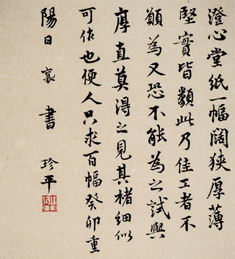 澄心堂紙一幅闊狹厚薄
堅實皆類此乃佳工者不
願為又恐不能為之試與
厚直莫得之見其楮細似
可作也便人只求百幅癸卯重
陽日襄書 珍平